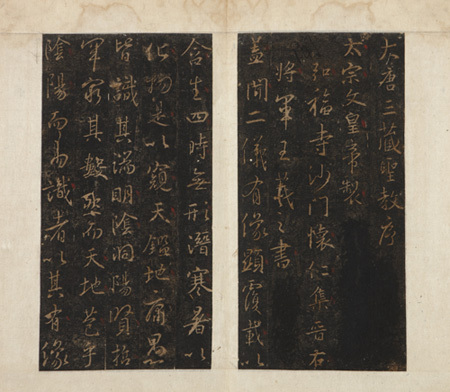 大唐三藏聖教序
太宗文皇帝製
弘福寺沙門懷仁集晉右
將軍王羲之書
蓋聞二儀有像顯覆載以
含生四時無形潛寒暑以
化物是以窺天鑑地庸愚
皆識其端明陰洞陽賢哲
罕窮其數然而天地苞乎
陰陽而易識者以其有像